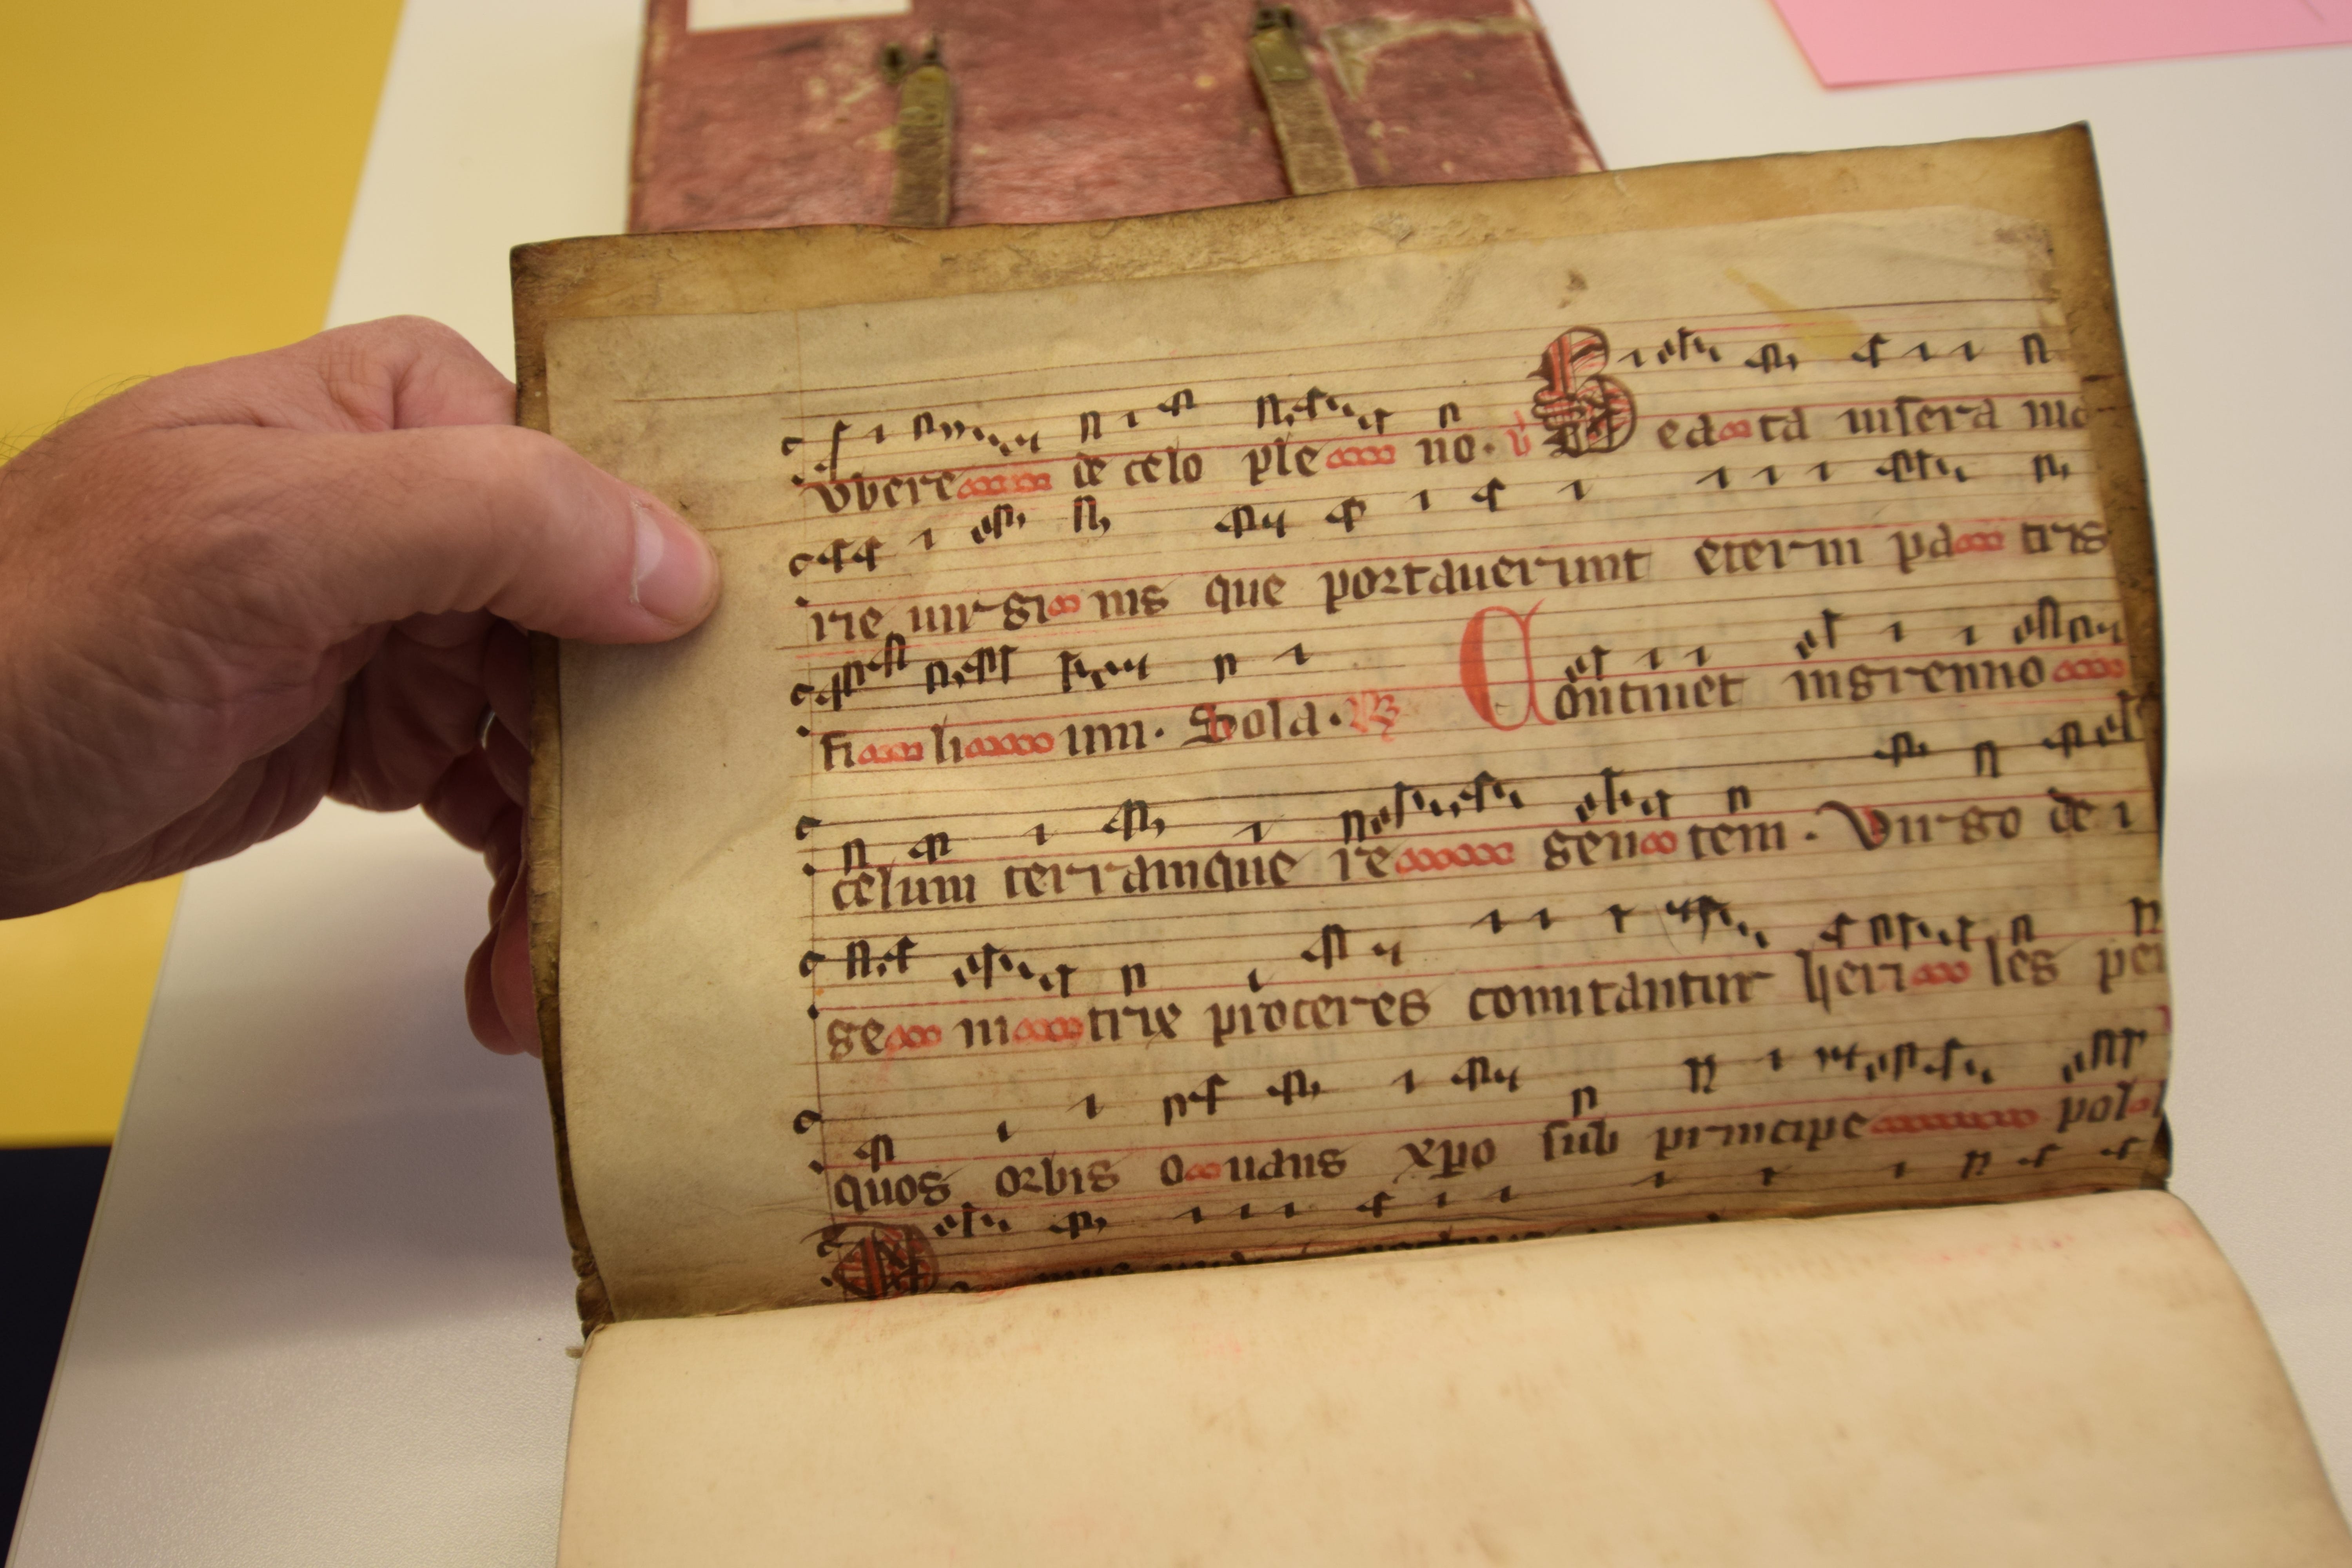 vbere de celo ple no. v Bea ta viscera ma
rie uir gi nis que portauerunt eterni pa tris
fi li um. Sola. R Continet in gremio
celum terramque re gen tem. Virgo dei
ge ni trix proceres comitantur heri les per
quos orbis o uans xpo sub principe pol l